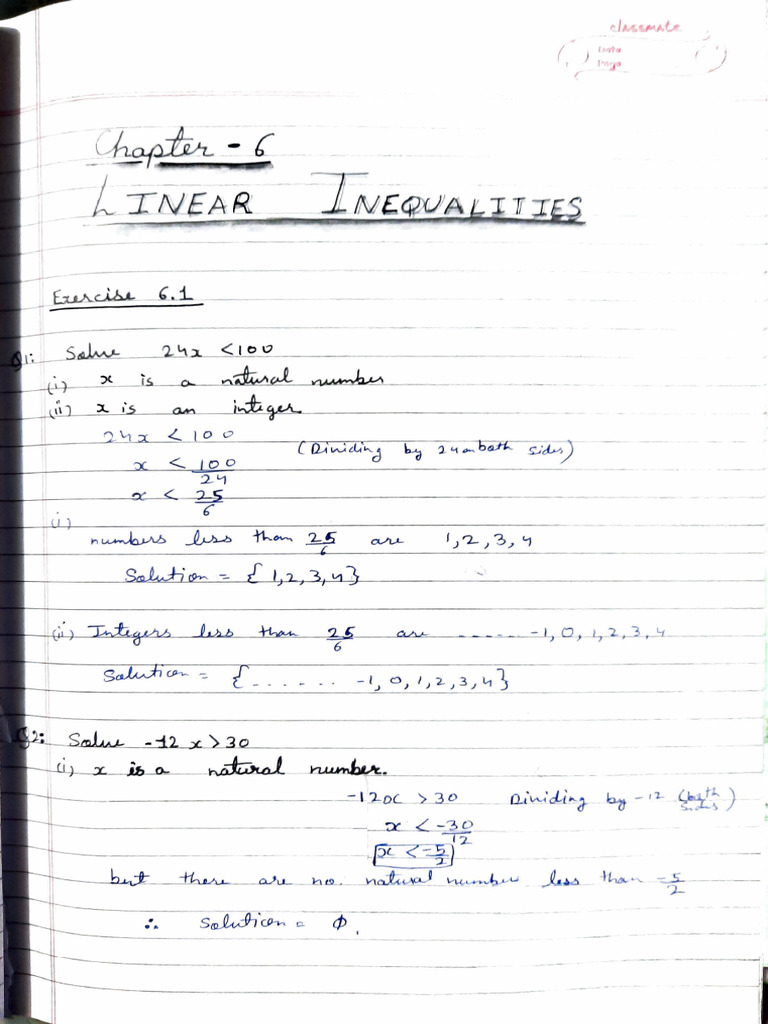 classmate
Date
Page
Chapter - 6
LINEAR INEQUALITIES
Exercise 6.1
Q1: Solve 24x < 100
(i) x is a natural number
(ii) x is an integer.
24x < 100
x < 100/24 (Dividing by 24 on both sides)
x < 25/6
(i)
numbers less than 25/6 are 1, 2, 3, 4
Solution = { 1, 2, 3, 4 }
(ii) Integers less than 25/6 are ...... -1, 0, 1, 2, 3, 4
Solution = { ....... -1, 0, 1, 2, 3, 4 }
Q2: Solve -12x > 30
(i) x is a natural number.
-12x > 30 Dividing by -12 (both sides)
x < -30/12
x < -5/2
but there are no. natural number less than -5/2
∴ Solution = ϕ.